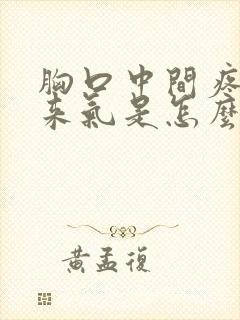 胸口中間疼
來氣是怎麼
黃孟復